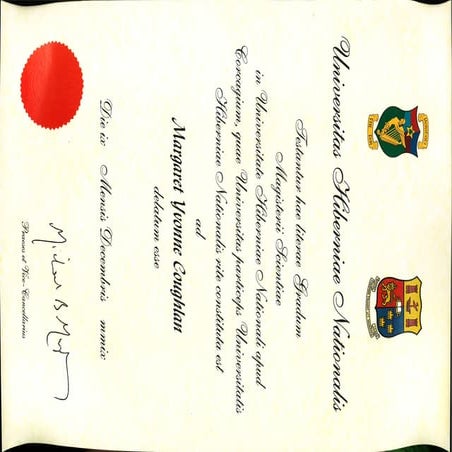 Universitas Hiberniae Nationalis
Testantur hae literae Gradum
Magisterii Scientiae
in Universitate Hiberniae Nationali apud
Corcagium, quae Universitas particeps Universitatis
Hiberniae Nationalis rite constituta est
ad
Margaret Yvonne Coughlan
delatum esse
Die ix Mensis Decembris mmix
Praeses et Vice-Cancellarius